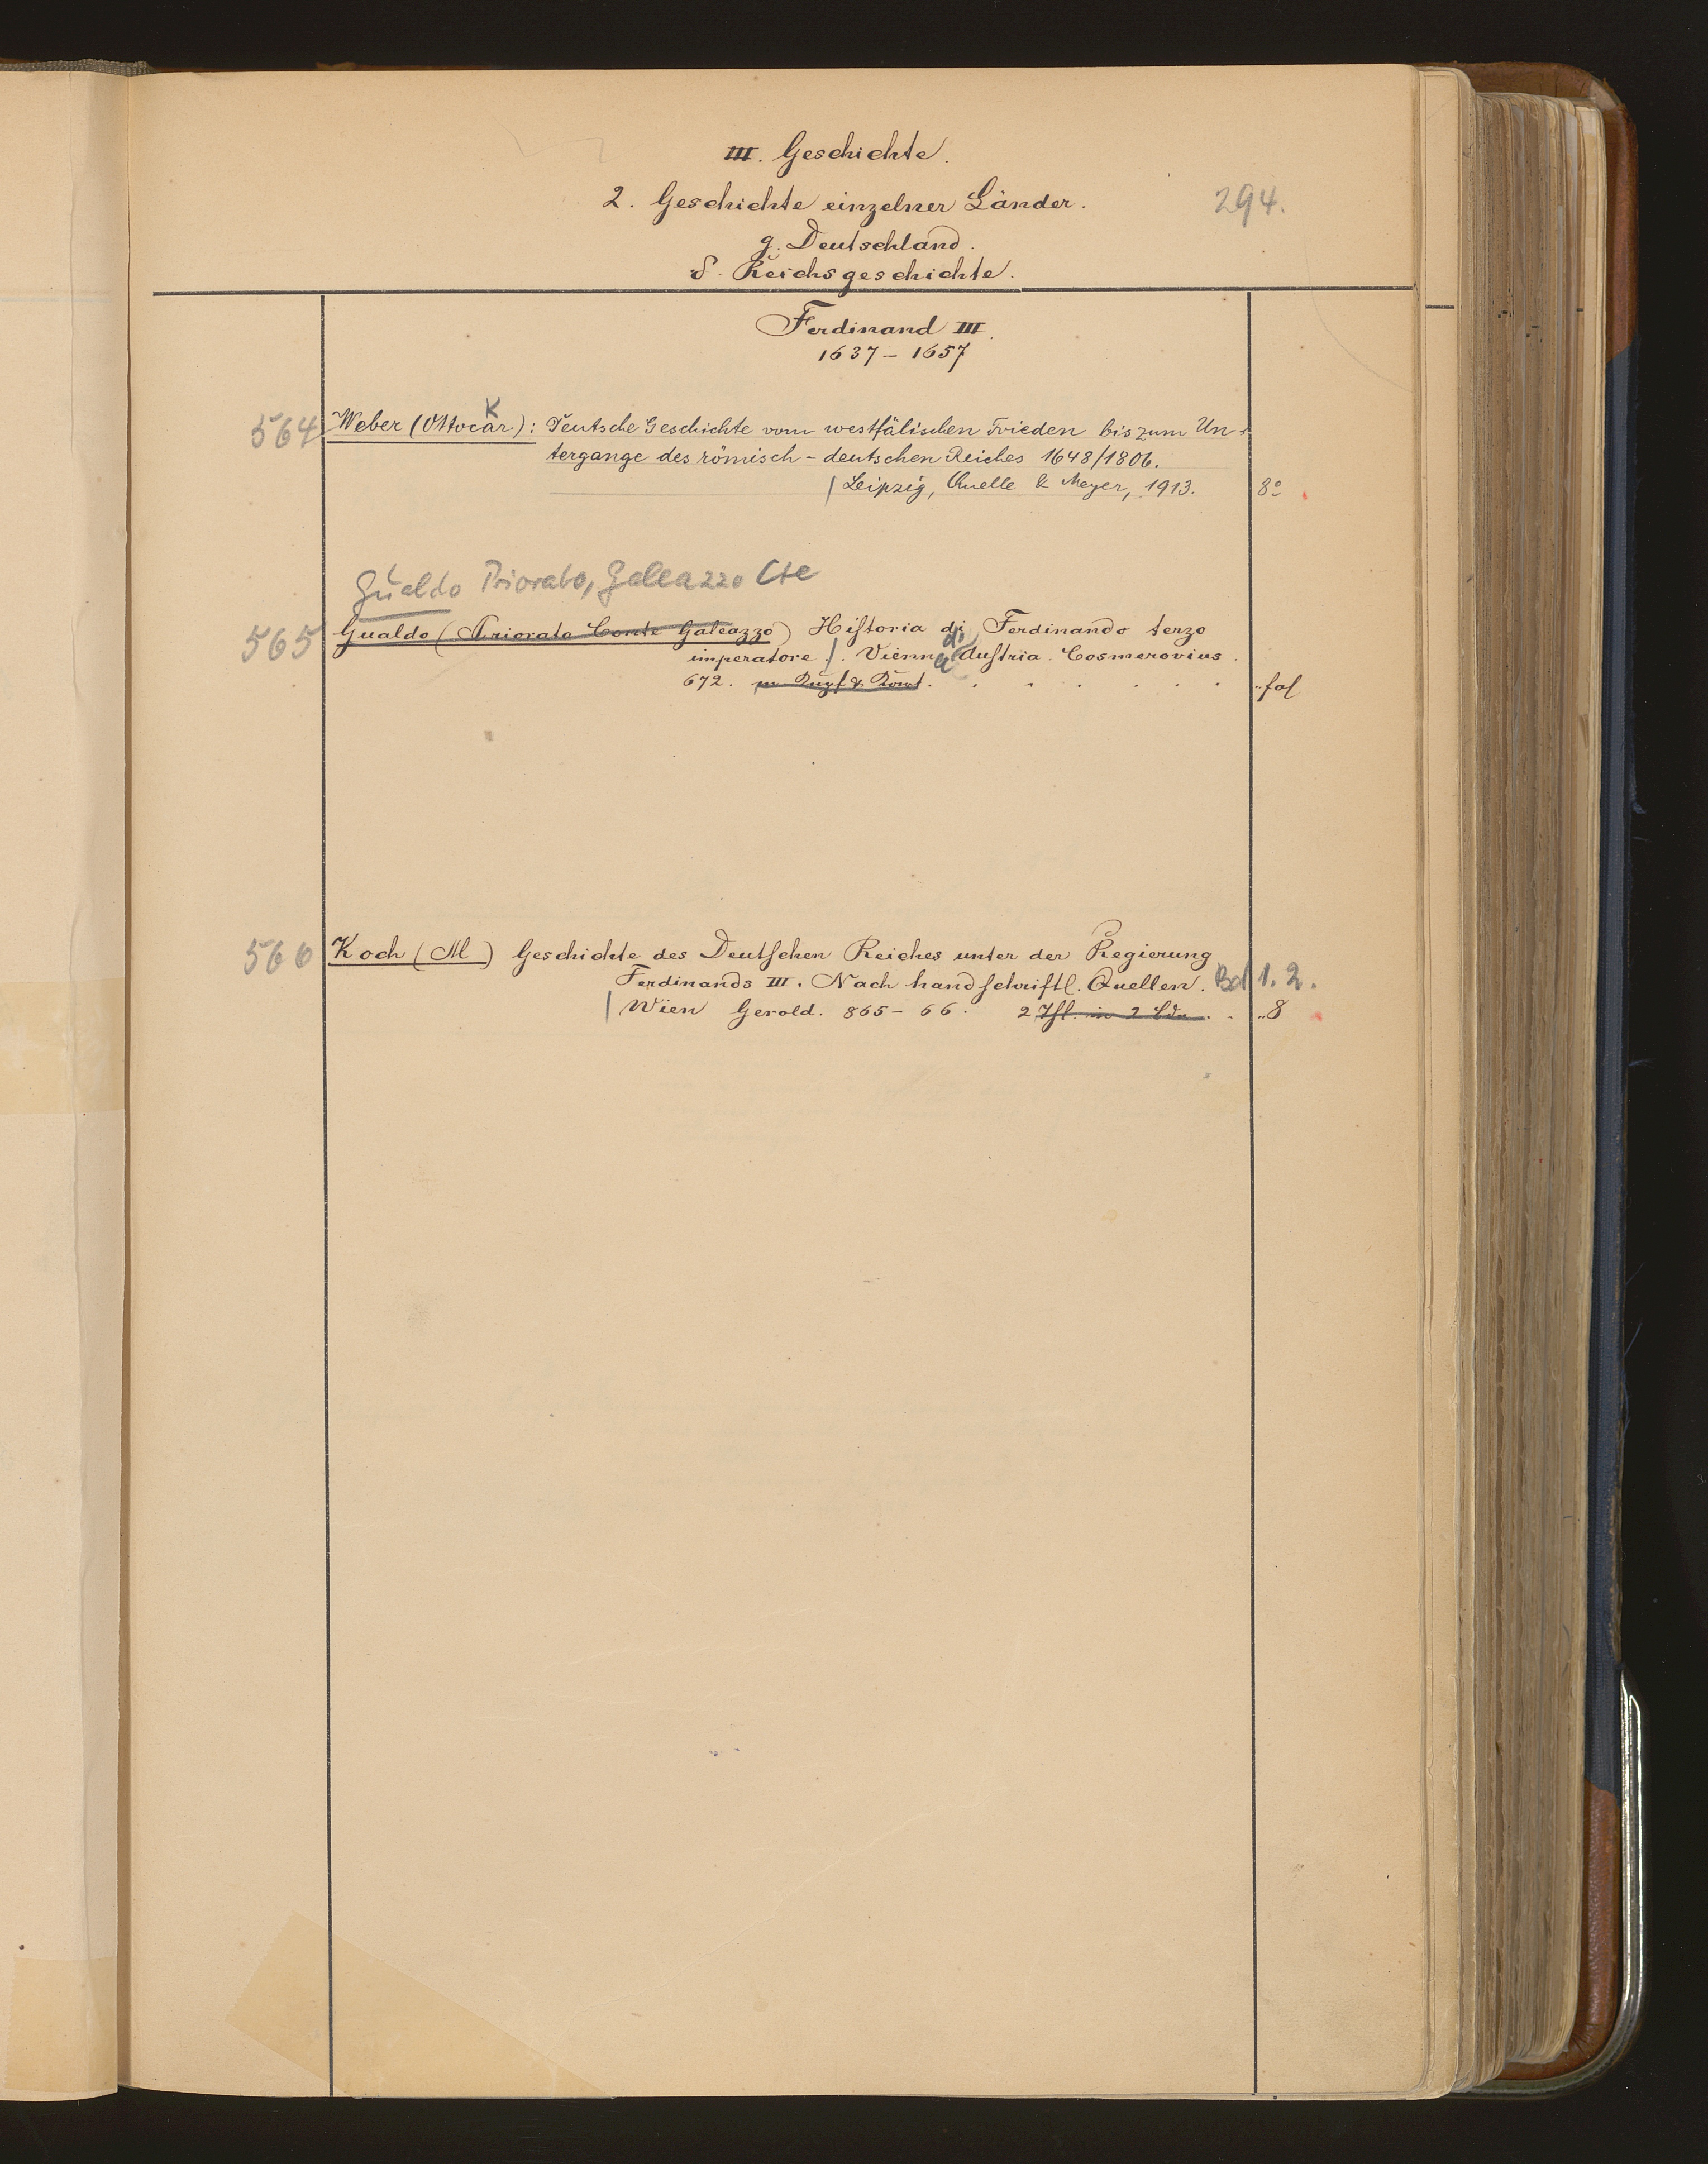 III. Geschichte.
2. Geschichte einzelner Länder.
294.
g. Deutschland.
δ. Reichsgeschichte.
Ferdinand III.
1637 – 1657
K
564 Weber (Ottocar): Deutsche Geschichte vom westfälischen Frieden bis zum Un-
tergange des römisch-deutschen Reiches 1648/1806.
| Leipzig, Quelle & Meyer, 1913. 8°
Gualdo Priorato, Galeazzo Cte
565 Gualdo (Priorato Conte Galeazzo) Historia di Ferdinando terzo
imperatore |. Vienna di Austria. Cosmerovius.
672. m. Kupf. & fol
566 Koch (M) Geschichte des Deutschen Reiches unter der Regierung
Ferdinands III. Nach handschriftl. Quellen. Bd 1. 2.
| Wien Gerold. 865–66. 2 Thl. in 2 Bdn. 8